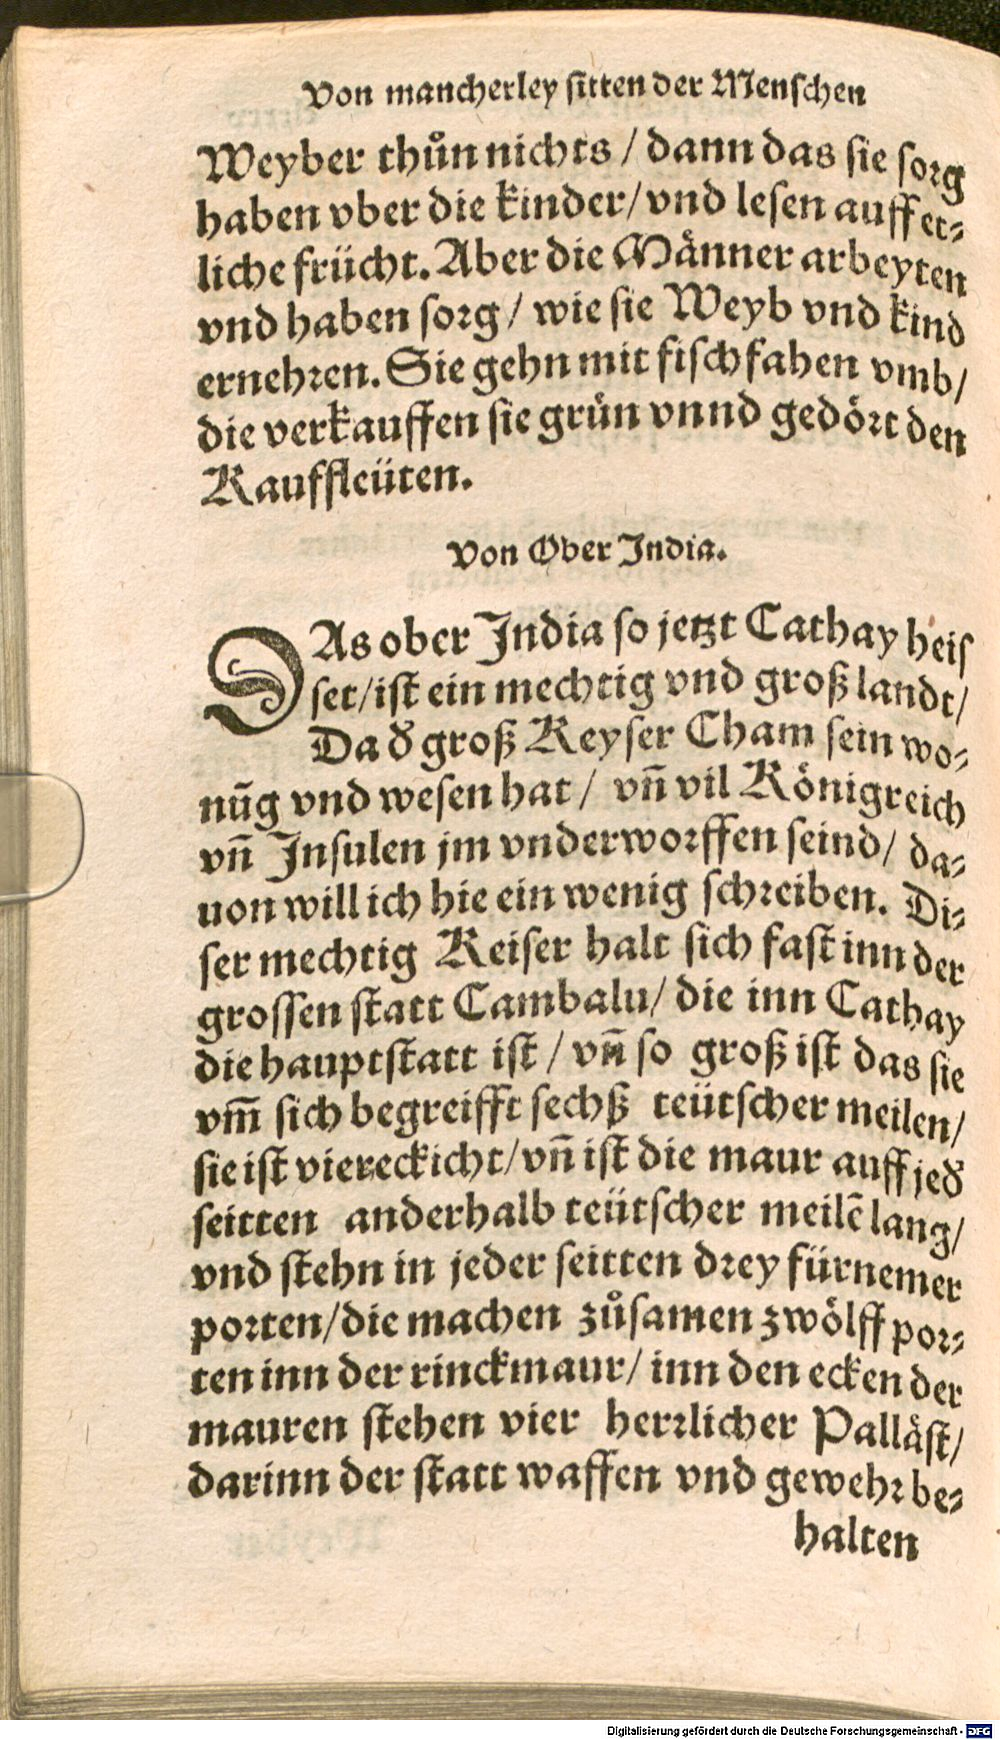 Von mancherley sitten der Menschen
Weyber thůn nichts / dann das sie sorg
haben vber die kinder / vnd lesen auff et⸗
liche frücht. Aber die Mânner arbeyten
vnd haben sorg / wie sie Weyb vnd kind
ernehren. Sie gehn mit fischfahen vmb /
die verkauffen sie grůn vnnd gedôrt den
Kauffleüten.
Von Ober India.
DAs ober India so jetzt Cathay heis
set / ist ein mechtig vnd groß landt /
Da d̕ groß Keyser Cham sein wo⸗
nūg vnd wesen hat / vn̄ vil Kônigreich
vn̄ Insulen jm vnderworffen seind / da⸗
uon will ich hie ein wenig schreiben. Di⸗
ser mechtig Keiser halt sich fast inn der
grossen statt Cambalu / die inn Cathay
die hauptstatt ist / vn̄ so groß ist das sie
vm̄ sich begreifft sechß teütscher meilen /
sie ist viereckicht / vn̄ ist die maur auff jed̕
seitten anderhalb teütscher meilē lang /
vnd stehn in jeder seitten drey fürnemer
porten / die machen zůsamen zwôlff por⸗
ten inn der rinckmaur / inn den ecken der
mauren stehen vier herrlicher Pallâst /
darinn der statt waffen vnd gewehr be⸗
halten
Digitalisierung gefördert durch die Deutsche Forschungsgemeinschaft - DFG